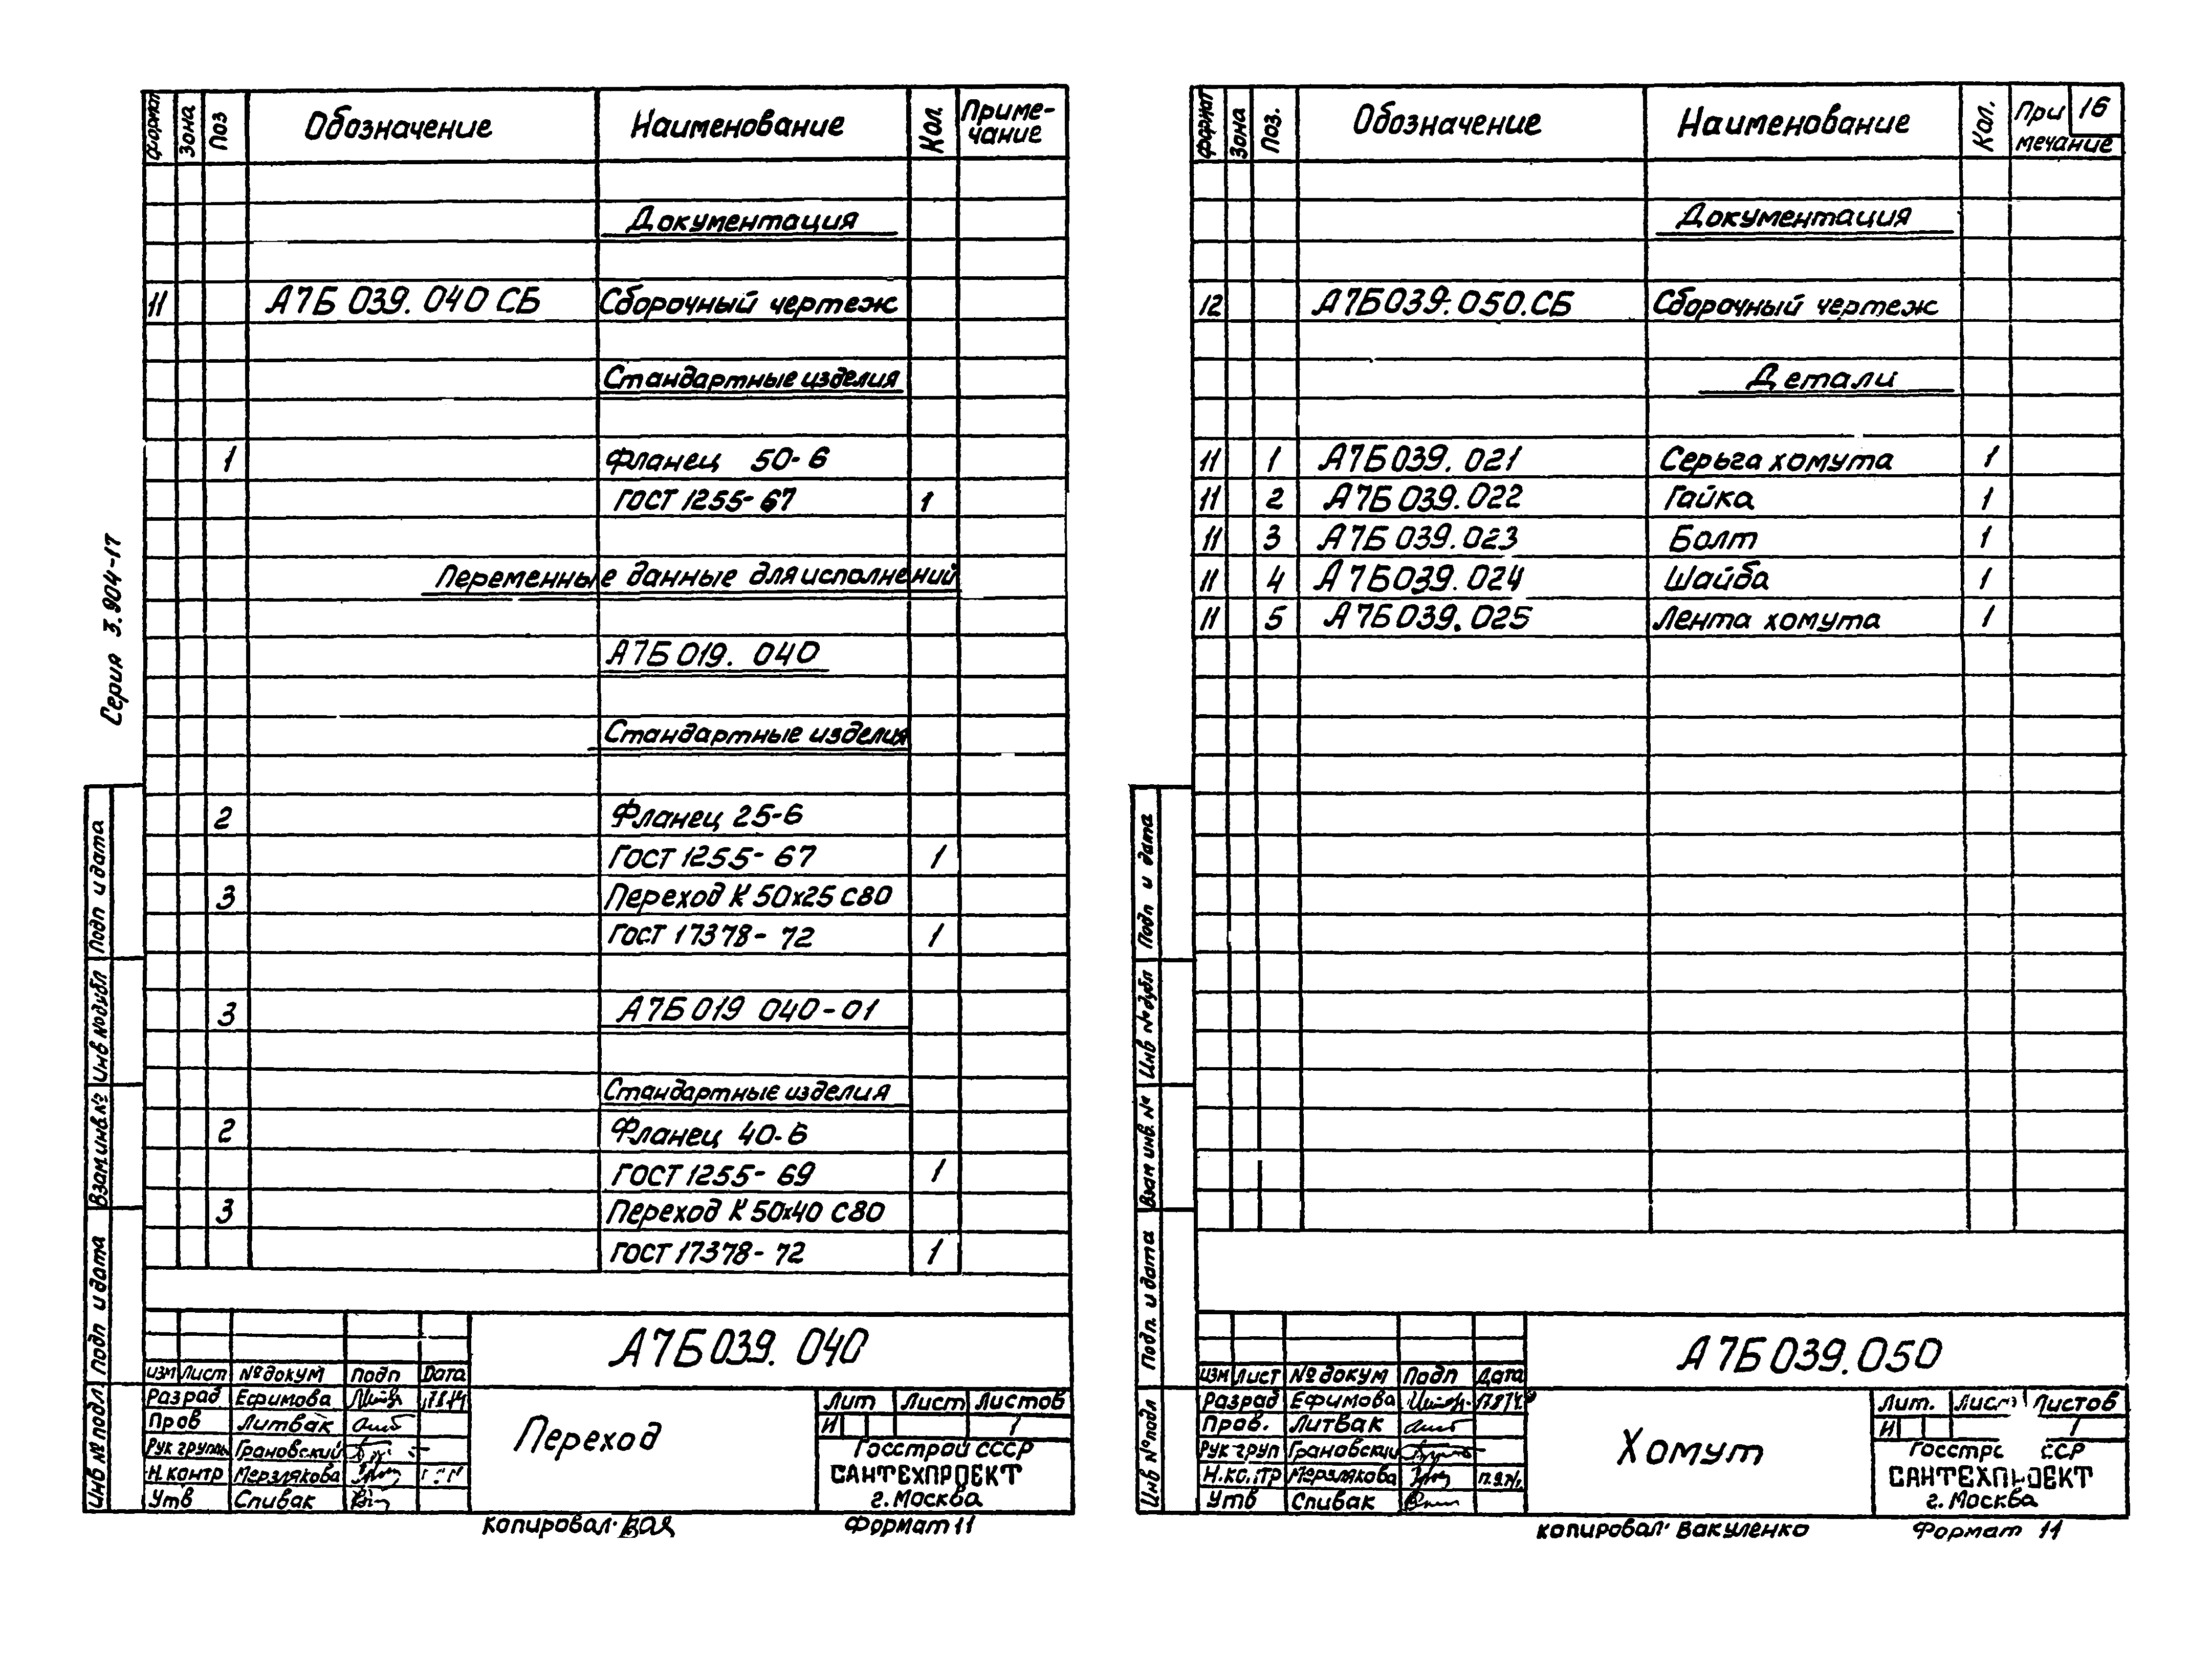 Формат Зона Поз Обозначение Наименование Кол. Приме-
чание
Документация
11 А7Б 039. 040 СБ Сборочный чертеж
Стандартные изделия
1 Фланец 50-6
ГОСТ 1255-67 1
Переменные данные для исполнений
А7Б 019. 040
Стандартные изделия
2 Фланец 25-6
ГОСТ 1255-67 1
3 Переход К 50х25 С80
ГОСТ 17378-72 1
3 А7Б 019 040-01
Стандартные изделия
2 Фланец 40-6
ГОСТ 1255-69 1
3 Переход К 50х40 С80
ГОСТ 17378-72 1
Серия 3.904-17
Подп и дата
Инв № дубл
Взам инв.№
Подп и дата
Инв № подл.
А7Б 039. 040
Изм Лист № докум Подп Дата
Разрад Ефимова
Пров Литвак
Рук группы Грановский
Н.контр Мерзлякова
Утв Спивак
Переход
Лит Лист Листов
И 1
Госстрой СССР
САНТЕХПРОЕКТ
г. Москва
Копировал: Формат 11
Формат Зона Поз. Обозначение Наименование Кол. При
мечание
16
Документация
12 А7Б 039.050.СБ Сборочный чертеж
Детали
11 1 А7Б 039. 021 Серьга хомута 1
11 2 А7Б 039.022 Гайка 1
11 3 А7Б 039.023 Болт 1
11 4 А7Б 039. 024 Шайба 1
11 5 А7Б 039. 025 Лента хомута 1
Подп и дата
Инв № дубл
Взам инв. №
Подп. и дата
Инв № подл
А7Б 039.050
Изм Лист № докум Подп Дата
Разрад Ефимова
Пров. Литвак
Рук груп Грановский
Н.контр Мерзлякова
Утв Спивак
Хомут
Лит. Лист Листов
И 1
Госстр ССР
САНТЕХПРОЕКТ
г. Москва
Копировал: Вакуленко Формат 11